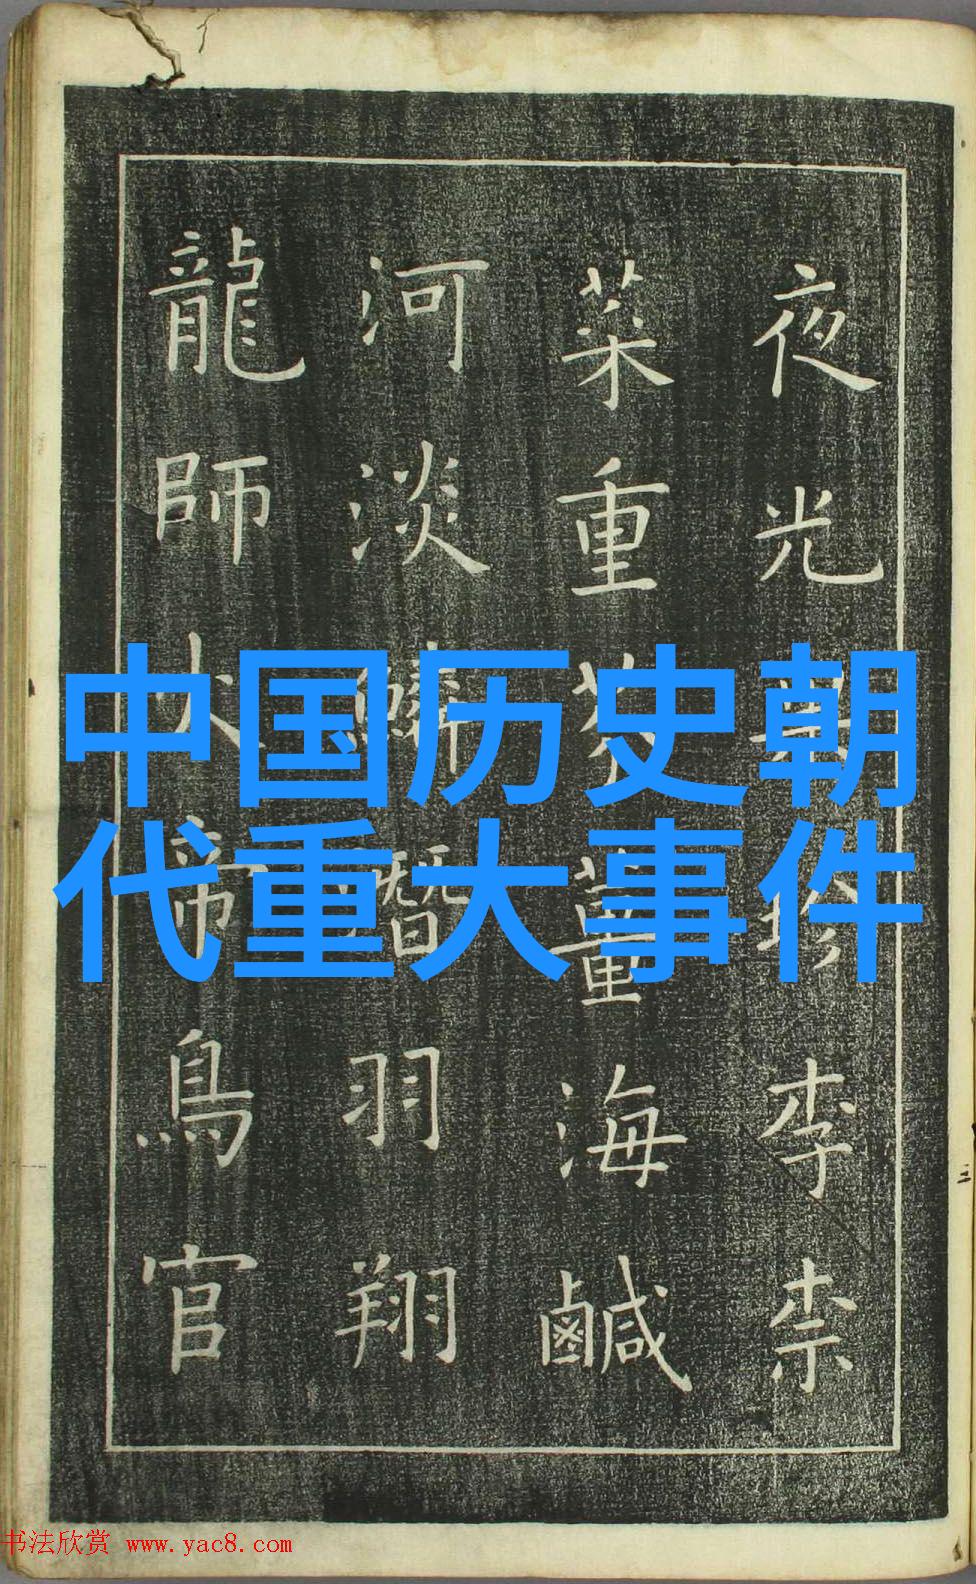 夜光果珍李柰
菜重芥薑海鹹
河淡鱗潛羽翔
龍師火帝鳥官
中国历史朝
代重大事件
书法欣赏 www.yac8.com